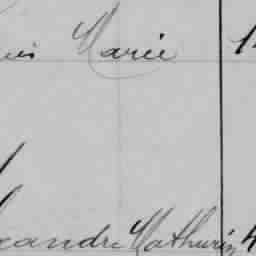 Marie 1
eandre Mathurin 4